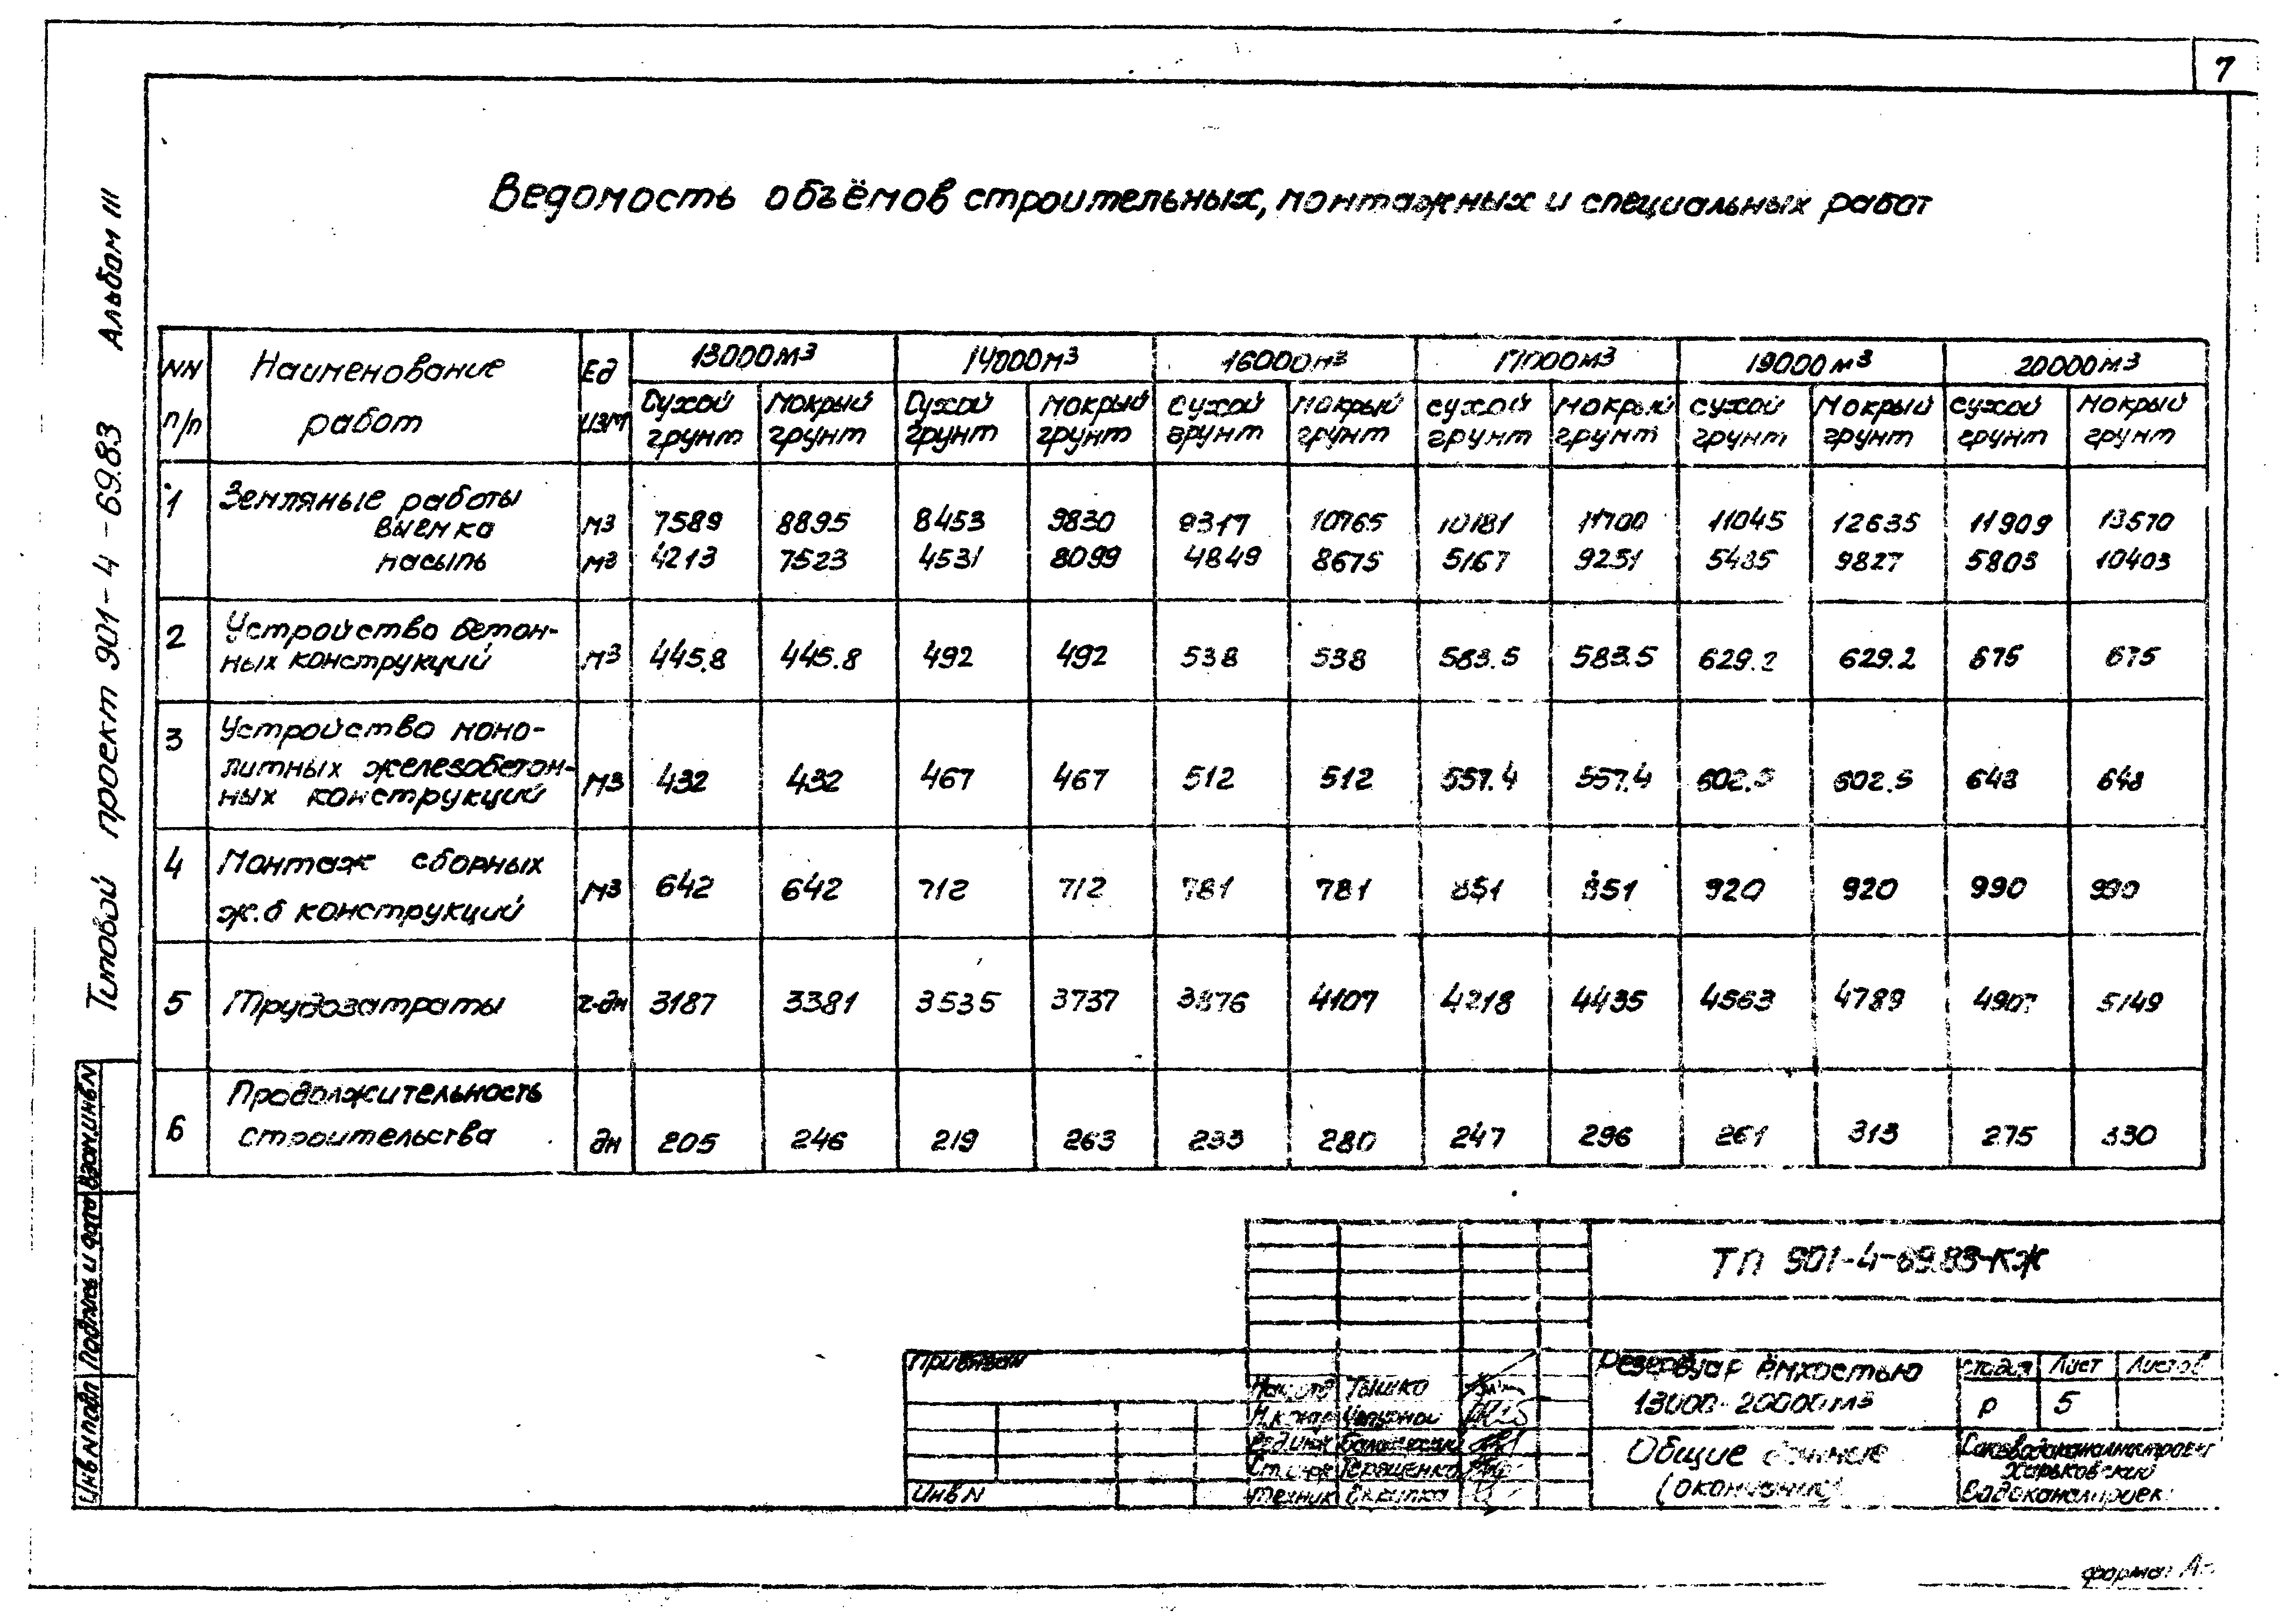 7
Ведомость объёмов строительных, монтажных и специальных работ
Типовой проект 901-4-69.83 Альбом III
NN п/п Наименование работ Ед изм 13000м3 14000м3 16000м3 17000м3 19000м3 20000м3
Сухой грунт Мокрый грунт Сухой грунт Мокрый грунт Сухой грунт Мокрый грунт Сухой грунт Мокрый грунт Сухой грунт Мокрый грунт Сухой грунт Мокрый грунт
1 Земляные работы
выемка м3 7589 8895 8453 9830 9317 10765 10181 11700 11045 12635 11909 13570
насыпь м3 4213 7523 4531 8099 4849 8675 5167 9251 5485 9827 5803 10403
2 Устройство бетон-
ных конструкций м3 445.8 445.8 492 492 538 538 583.5 583.5 629.2 629.2 675 675
3 Устройство моно-
литных железобетон-
ных конструкций м3 432 432 467 467 512 512 557.4 557.4 602.5 602.5 648 648
4 Монтаж сборных
ж.б конструкций м3 642 642 712 712 781 781 851 851 920 920 990 990
5 Трудозатраты ч-дн 3187 3381 3535 3737 3876 4107 4218 4435 4563 4789 4907 5149
6 Продолжительность
строительства дн 205 246 219 263 233 280 247 296 261 313 275 330
ТП 901-4-69.83-КЖ
Привязан
Инв N
Нач.отд Тышко
Н.контр Чепурной
Ст.инж Терещенко
техник Скрипка
Резервуар ёмкостью
13000-20000м3
стадия Лист Листов
Р 5
Общие данные
(окончание)
Союзводоканалпроект
Харьковский
Водоканалпроект
Инв N подл Подпись и дата Взам.инв N
формат